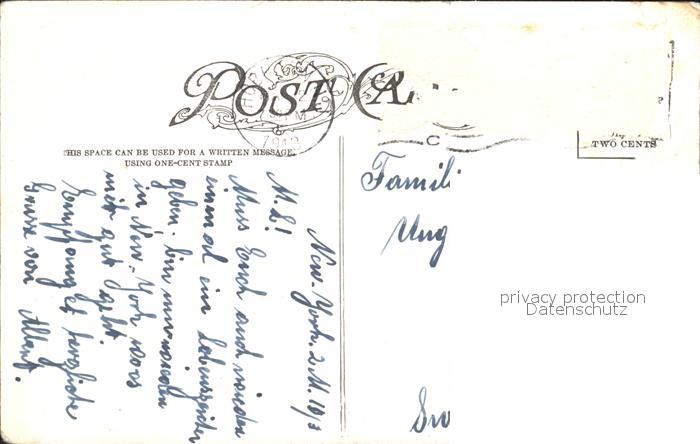 POST CA
THIS SPACE CAN BE USED FOR A WRITTEN MESSAGE,
USING ONE-CENT STAMP
TWO CENTS
New-York. 2.M. 1913
M. L!
Muss Euch auch wieder
einmal ein Lebenszeichen
geben. bin nun wieder
in New-York woos
mir gut geht.
Empfanget herzliche
Grüsse von Albert.
Famili
Ung
privacy protection
Datenschutz